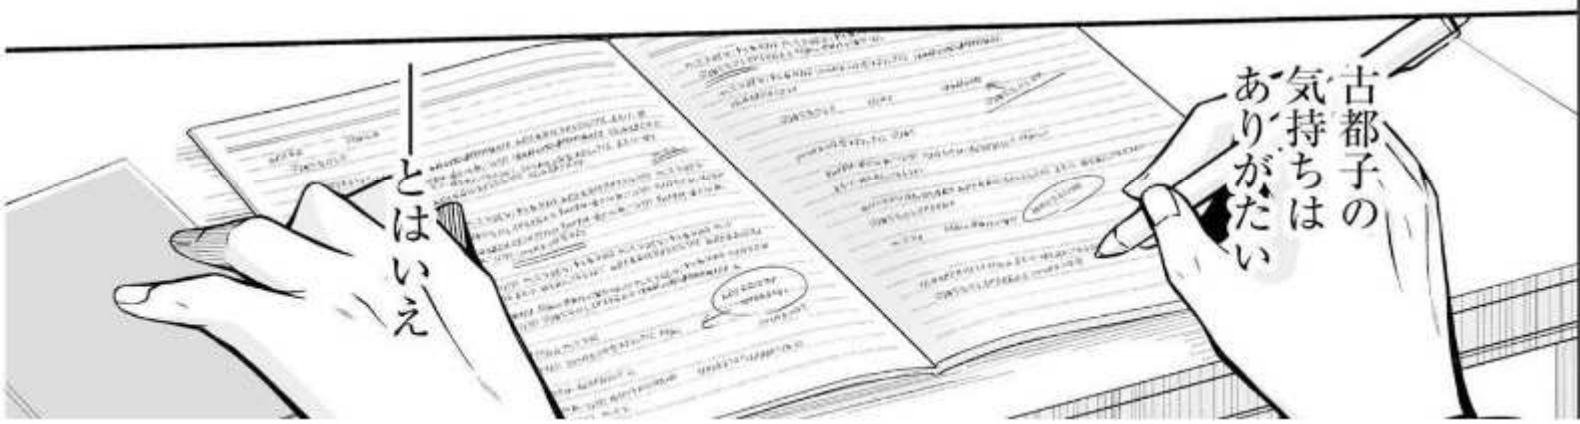 古都子の
気持ちは
ありがたい
―とはいえ